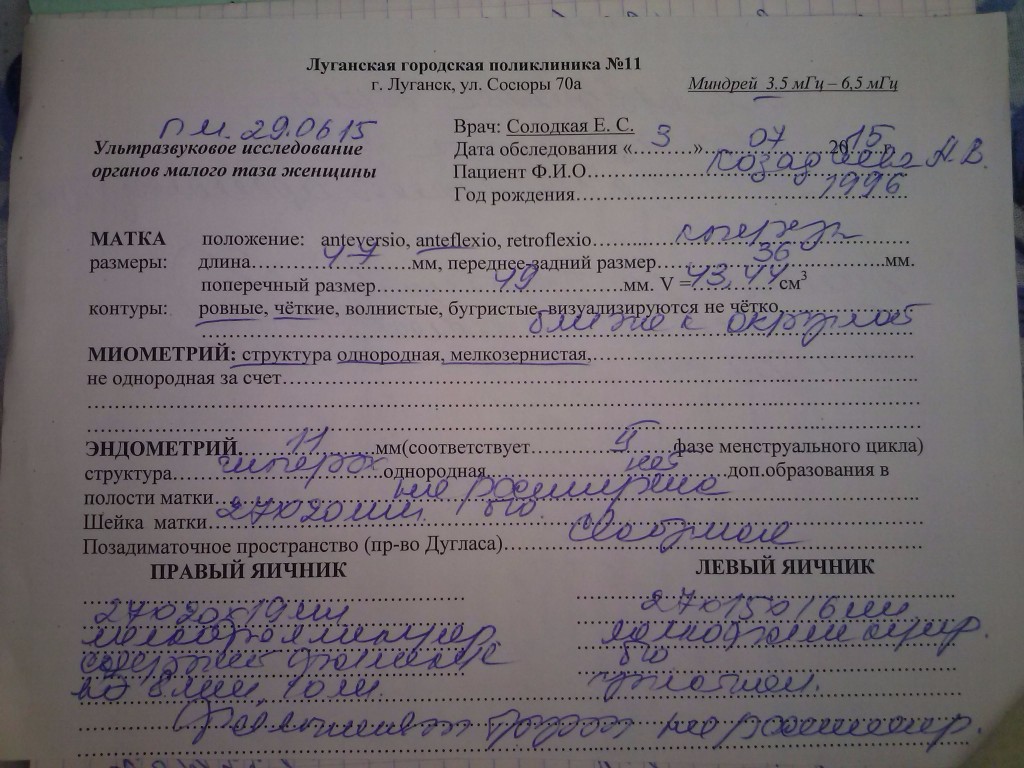 Луганская городская поликлиника №11
г. Луганск, ул. Сосюры 70а
Миндрей 3.5 мГц – 6,5 мГц
П.М. 29.06 15
Ультразвуковое исследование
органов малого таза женщины
Врач: Солодкая Е. С.
Дата обследования «3» 07 2015 г.
Пациент Ф.И.О. Н. В.
Год рождения 1996
МАТКА положение: anteversio, anteflexio, retroflexio кпереди
размеры: длина 47 мм, переднее-задний размер 36 мм.
поперечный размер 49 мм. V = 43,44 см3
контуры: ровные, чёткие, волнистые, бугристые, визуализируются не чётко,
ближе к округлой
МИОМЕТРИЙ: структура однородная, мелкозернистая,
не однородная за счет
ЭНДОМЕТРИЙ 11 мм(соответствует фазе менструального цикла)
структура гиперэх однородная нет доп.образования в
полости матки не расширена
Шейка матки 27х20мм. б/о.
Позадиматочное пространство (пр-во Дугласа) свободное
ПРАВЫЙ ЯИЧНИК
27х20х19мм
содержит
до 8мм, 10мм.
ЛЕВЫЙ ЯИЧНИК
27х15х16мм
б/о
не расширен.